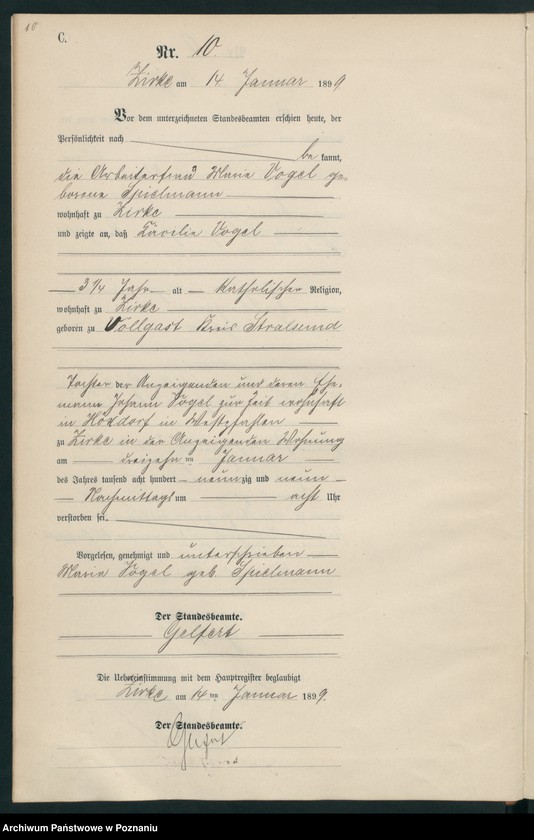 10
C.
Nr. 10.
Zirke am 14 Januar 1899
Vor dem unterzeichneten Standesbeamten erschien heute, der
Persönlichkeit nach
bekannt,
die Arbeiterfrau Maria Vogel ge-
borene Spielmann
wohnhaft zu Zirke
und zeigte an, daß Cäcilie Vogel
3 1/4 Jahr alt Katholischer Religion,
wohnhaft zu Zirke
geboren zu Wollgast Kreis Stralsund
Tochter der Anzeigenden und deren Ehe-
mann Johann Vogel zur Zeit wohnhaft
in in Westpfahlen
zu Zirke in der Anzeigenden Wohnung
am dreizehnten Januar
des Jahres tausend acht hundert neunzig und neun
Nachmittags um acht Uhr
verstorben sei.
Vorgelesen, genehmigt und unterschrieben
Maria Vogel geb. Spielmann
Der Standesbeamte.
Gelfert
Die Uebereinstimmung mit dem Hauptregister beglaubigt
Zirke am 14ten Januar 1899.
Der Standesbeamte.
Gelfert
Archiwum Państwowe w Poznaniu